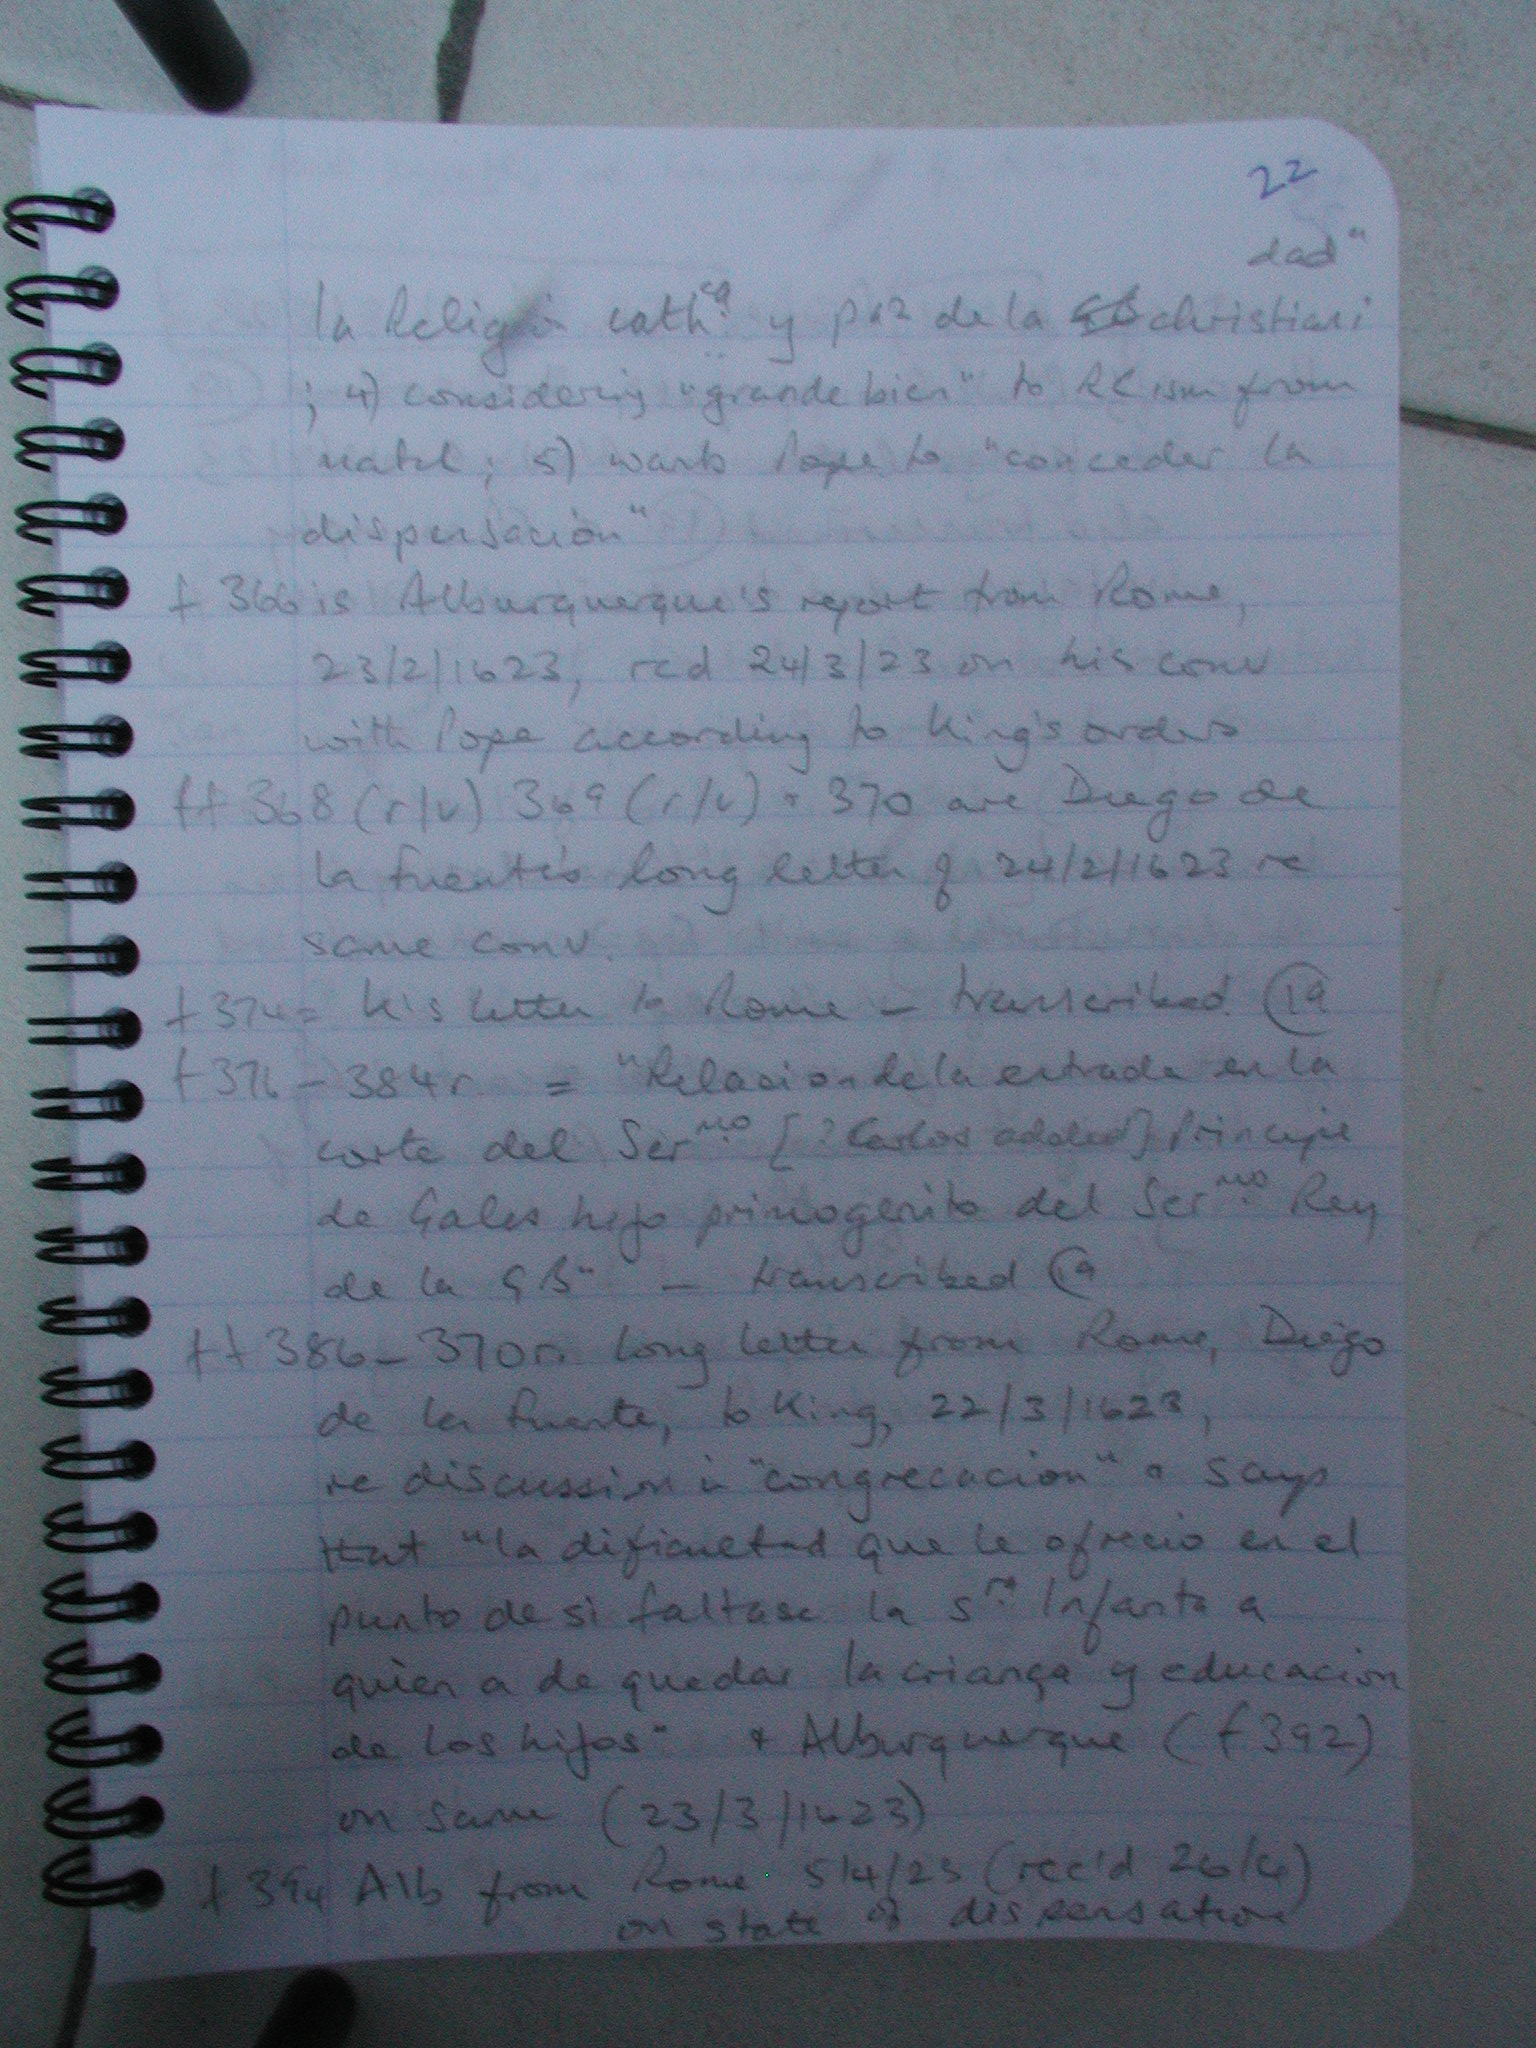 22
dad"
la Religión cath.ca y paz de la christiani
; 4) considering "grande bien" to RCism from
match; 5) wants Pope to "conceder la
dispensación"
f 366 is Alburquerque's report from Rome,
23/2/1623, rcd 24/3/23 on his conv
with Pope according to King's orders
ff 368 (r/v) 369 (r/v) + 370 are Diego de
la Fuente's long letter of 24/2/1623 re
same conv.
f 374 = K's letter to Rome – transcribed
f 376 – 384r = "Relacion de la entrada en la
corte del Ser.mo [?Carlos added] Principe
de Gales hijo primogenito del Ser.mo Rey
de la GB" – transcribed
ff 386 – 370r. long letter from Rome, Diego
de la Fuente, to King, 22/3/1623,
re discussion in "congrecacion" + says
that "la dificuetad que le ofrecio en el
punto de si faltase la s.ra Infanta a
quien a de quedar la criança y educacion
de los hijos" + Alburquerque (f 392)
on same (23/3/1623)
f 394 Alb from Rome 5/4/23 (rec'd 26/4)
on state of dispensation